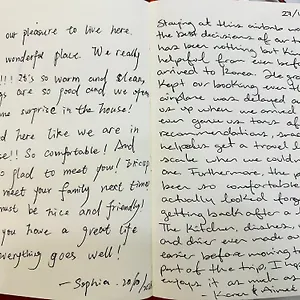 our pleasure to live here.
wonderful place. We really
!!! It's so warm and clean,
gs are so good and we often
me surprise in the house!
d here like we are in
se!! So comfortable! And
o glad to meet you!
meet your family next time
must be nice and friendly!
you have a great life
everything goes well!
- Sophia.
Staying at this airbnb w
the best decisions of our t
has been nothing but Kin
helpful from even befor
arrived to Korea. He gra
kept our booking even th
airplane was delayed a
us when we arrived
even gave us tons of
recommendations,
helped us get a travel
scale when we couldn
one. Furthermore, the p
been so comfortable
actually looked forw
getting back after a
The kitchen, dishes,
and drier even made ou
easier before moving to
part of the trip, I
enjoys it as much as